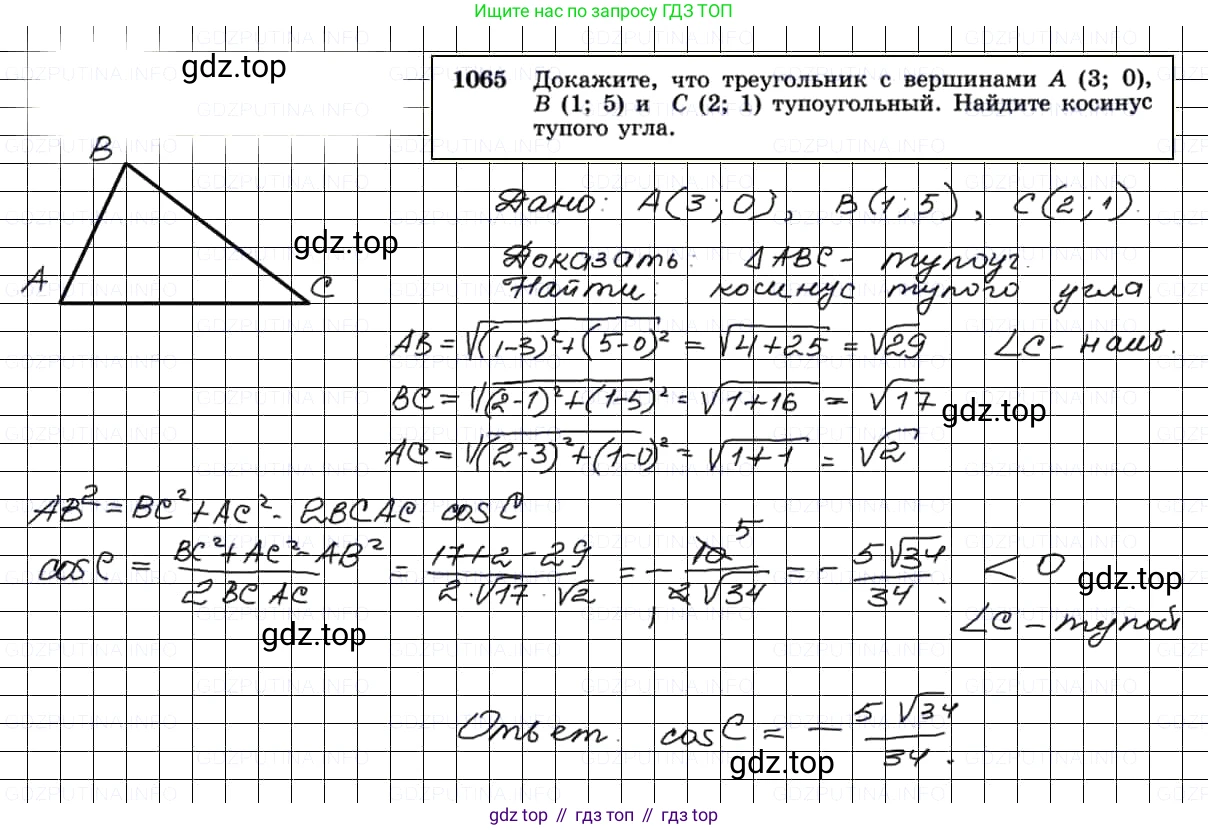 Ищите нас по запросу ГДЗ ТОП
gdz.top
1065 Докажите, что треугольник с вершинами A (3; 0),
B (1; 5) и C (2; 1) тупоугольный. Найдите косинус
тупого угла.
B
A
C
gdz.top
Дано: A(3;0), B(1;5), C(2;1).
Доказать: ΔABC - тупоуг.
Найти: косинус тупого угла
AB = √((1-3)²+(5-0)²) = √(4+25) = √29 ∠C - наиб.
BC = √((2-1)²+(1-5)²) = √(1+16) = √17
gdz.top
AC = √((2-3)²+(1-0)²) = √(1+1) = √2
AB² = BC²+AC² - 2BC AC cos C
cos C = (BC²+AC²-AB²)/(2 BC AC) = (17+2-29)/(2·√17·√2) = - 10 5/(2 1 √34) = - 5√34/34 < 0
gdz.top
∠C - тупой
gdz.top
Ответ. cos C = - 5√34/34.
gdz.top
gdz.top // гдз топ // gdz.top
GDZPUTINA.INFO